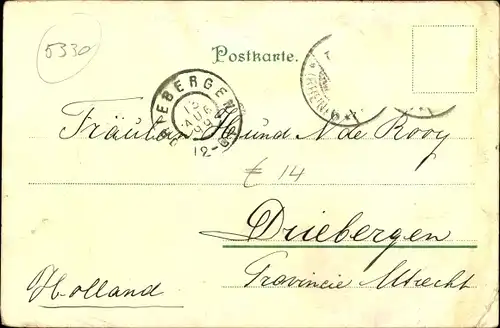 5330
Postkarte.
DRIEBERGEN
13 AUG 99
12-
Fräulein H und N de Rooy
€ 14
Driebergen
Provincie Utrecht
Holland